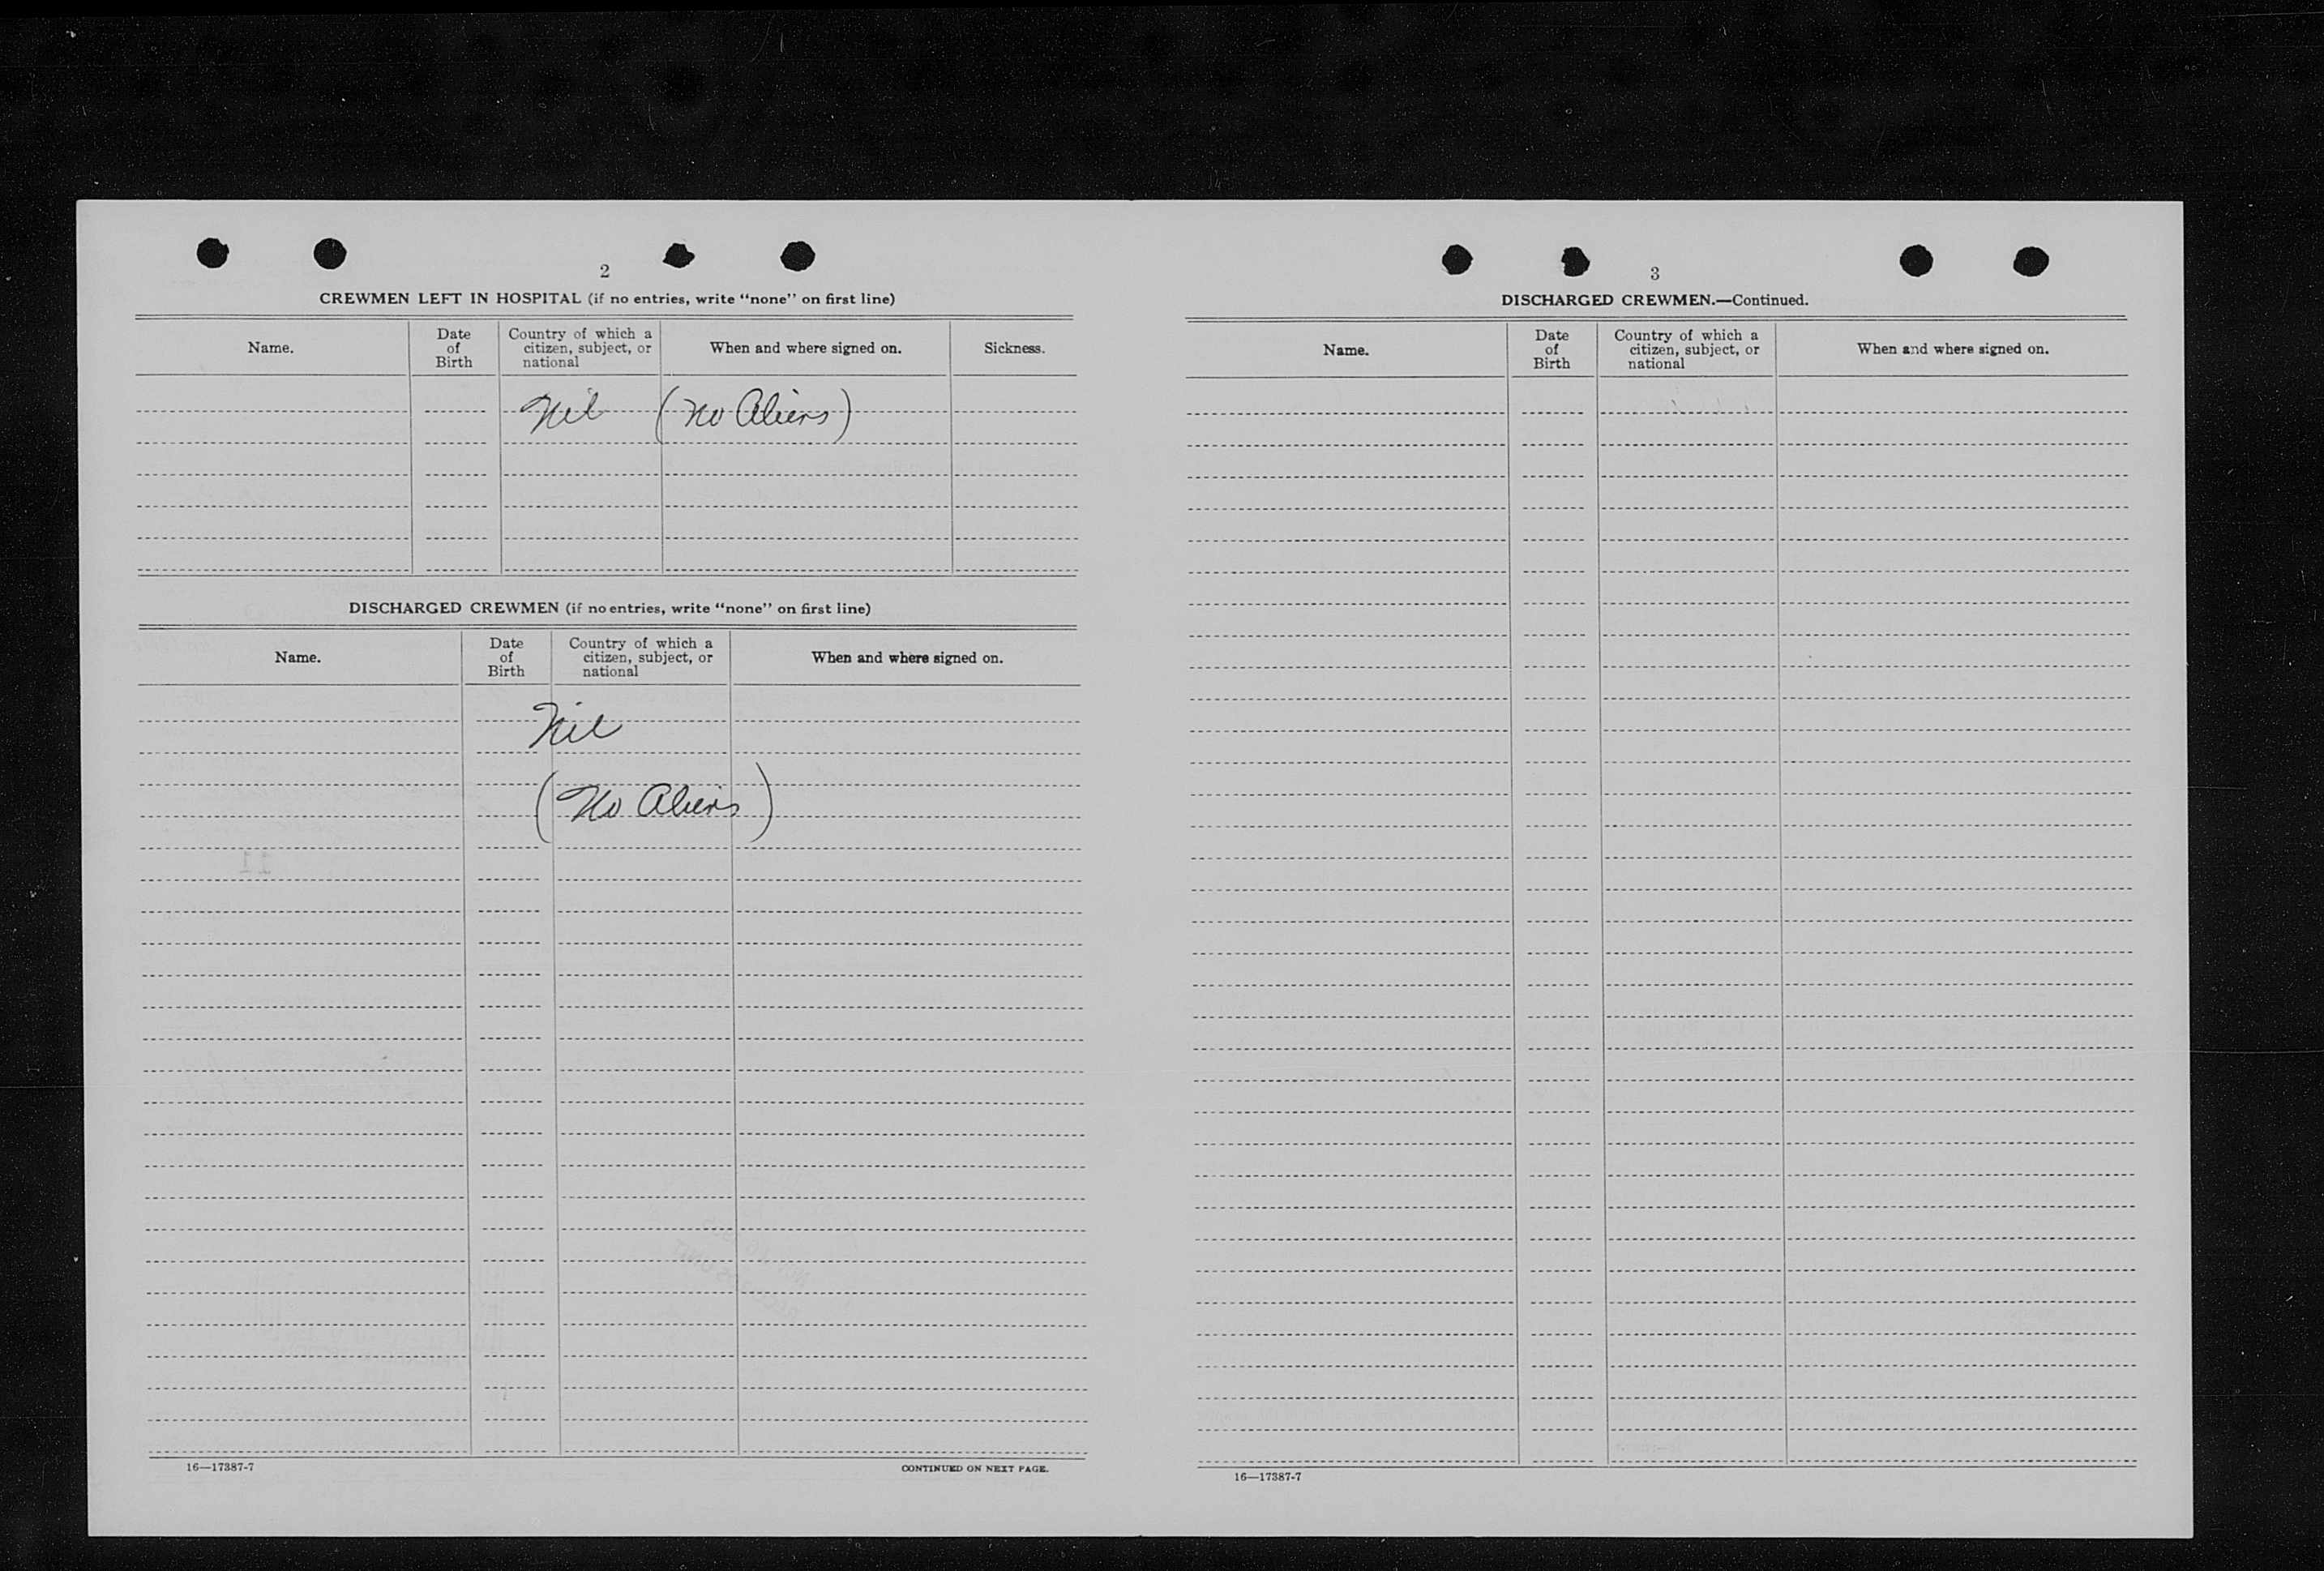 2
CREWMEN LEFT IN HOSPITAL (if no entries, write “none” on first line)
Name.
Date of Birth
Country of which a citizen, subject, or national
When and where signed on.
Sickness.
Nil (No Aliens)
DISCHARGED CREWMEN (if no entries, write “none” on first line)
Name.
Date of Birth
Country of which a citizen, subject, or national
When and where signed on.
Nil
(No Aliens)
11
16—17387-7
CONTINUED ON NEXT PAGE.
3
DISCHARGED CREWMEN.—Continued.
Name.
Date of Birth
Country of which a citizen, subject, or national
When and where signed on.
16—17387-7